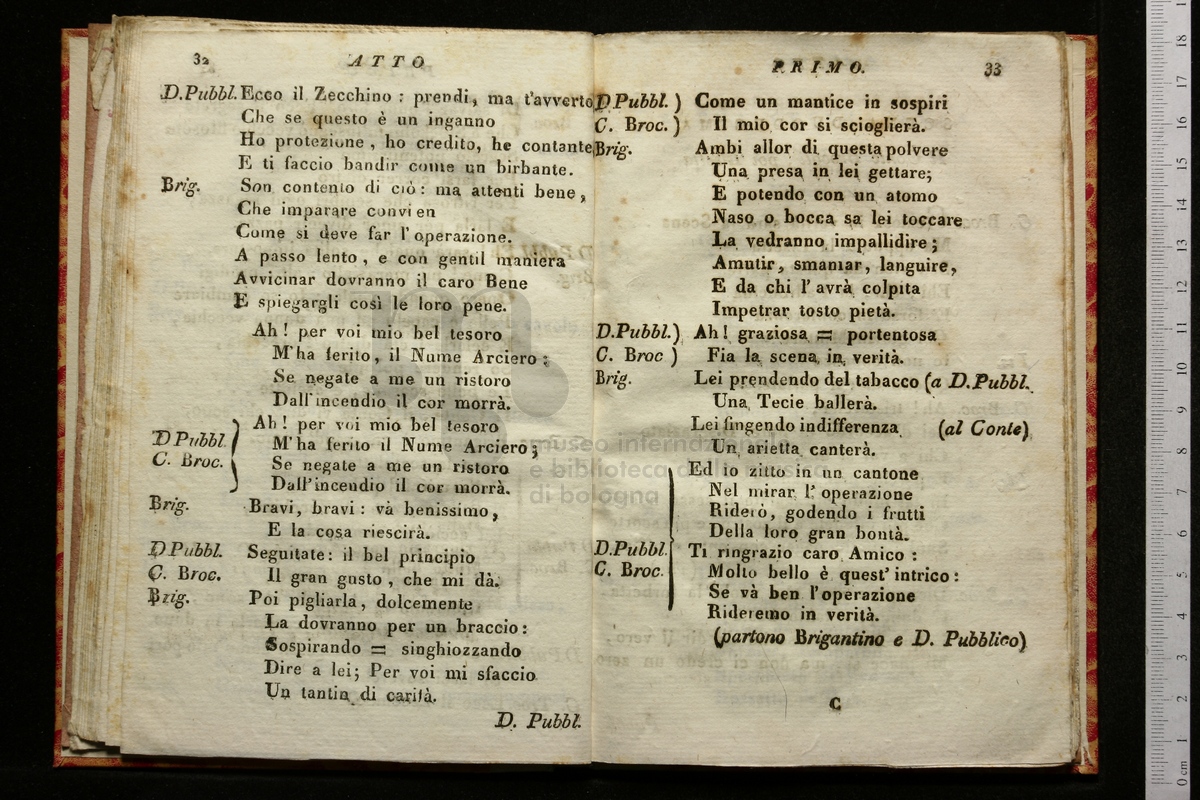 32 ATTO
D.Pubbl. Ecco il Zecchino : prendi, ma t'avverto
Che se questo è un inganno
Ho protezione, ho credito, he contante
E ti faccio bandir come un birbante.
Brig. Son contento di ciò : ma attenti bene,
Che imparare convien
Come si deve far l'operazione.
A passo lento, e con gentil maniera
Avvicinar dovranno il caro Bene
E spiegargli così le loro pene.
Ah! per voi mio bel tesoro
M'ha ferito, il Nume Arciero :
Se negate a me un ristoro
Dall'incendio il cor morrà.
Ah! per voi mio bel tesoro
D Pubbl. M'ha ferito il Nume Arciero;
C. Broc. Se negate a me un ristoro
Dall'incendio il cor morrà.
Brig. Bravi, bravi : và benissimo,
E la cosa riescirà.
D Pubbl. Seguitate : il bel principio
C. Broc. Il gran gusto, che mi dà.
Brig. Poi pigliarla, dolcemente
La dovranno per un braccio :
Sospirando = singhiozzando
Dire a lei; Per voi mi sfaccio
Un tantin di carità.
D. Pubbl.
PRIMO. 33
D Pubbl. ) Come un mantice in sospiri
C. Broc. ) Il mio cor si scioglierà.
Brig. Ambi allor di questa polvere
Una presa in lei gettare;
E potendo con un atomo
Naso o bocca sa lei toccare
La vedranno impallidire;
Amutir, smaniar, languire,
E da chi l'avrà colpita
Impetrar tosto pietà.
D.Pubbl. ) Ah! graziosa = portentosa
C. Broc ) Fia la scena in verità.
Brig. Lei prendendo del tabacco (a D.Pubbl.
Una Tecie ballerà.
Lei fingendo indifferenza (al Conte)
Un arietta canterà.
Ed io zitto in un cantone
Nel mirar l'operazione
Riderò, godendo i frutti
Della loro gran bontà.
D.Pubbl. Ti ringrazio caro Amico :
C. Broc. Molto bello è quest'intrico :
Se và ben l'operazione
Rideremo in verità.
(partono Brigantino e D. Pubblico)
C
museo internazionale
e biblioteca della musica
di bologna